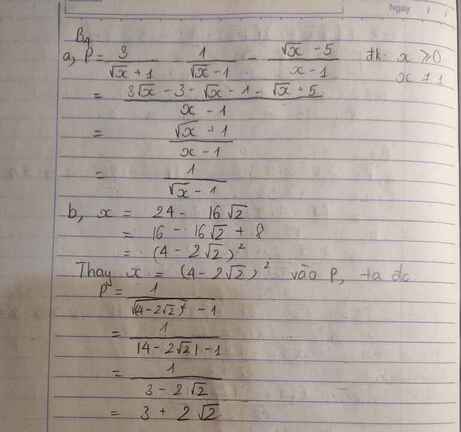 Ngày
Bg
a, P = 3/(√x + 1) - 1/(√x - 1) - (√x - 5)/(x - 1) đk: x ≥ 0
x ≠ 1
= (3√x - 3 - √x - 1 - √x + 5)/(x - 1)
= (√x + 1)/(x - 1)
= 1/(√x - 1)
b, x = 24 - 16√2
= 16 - 16√2 + 8
= (4 - 2√2)²
Thay x = (4 - 2√2)² vào P, ta đc
P = 1/(√(4 - 2√2)² - 1)
= 1/(|4 - 2√2| - 1)
= 1/(3 - 2√2)
= 3 + 2√2